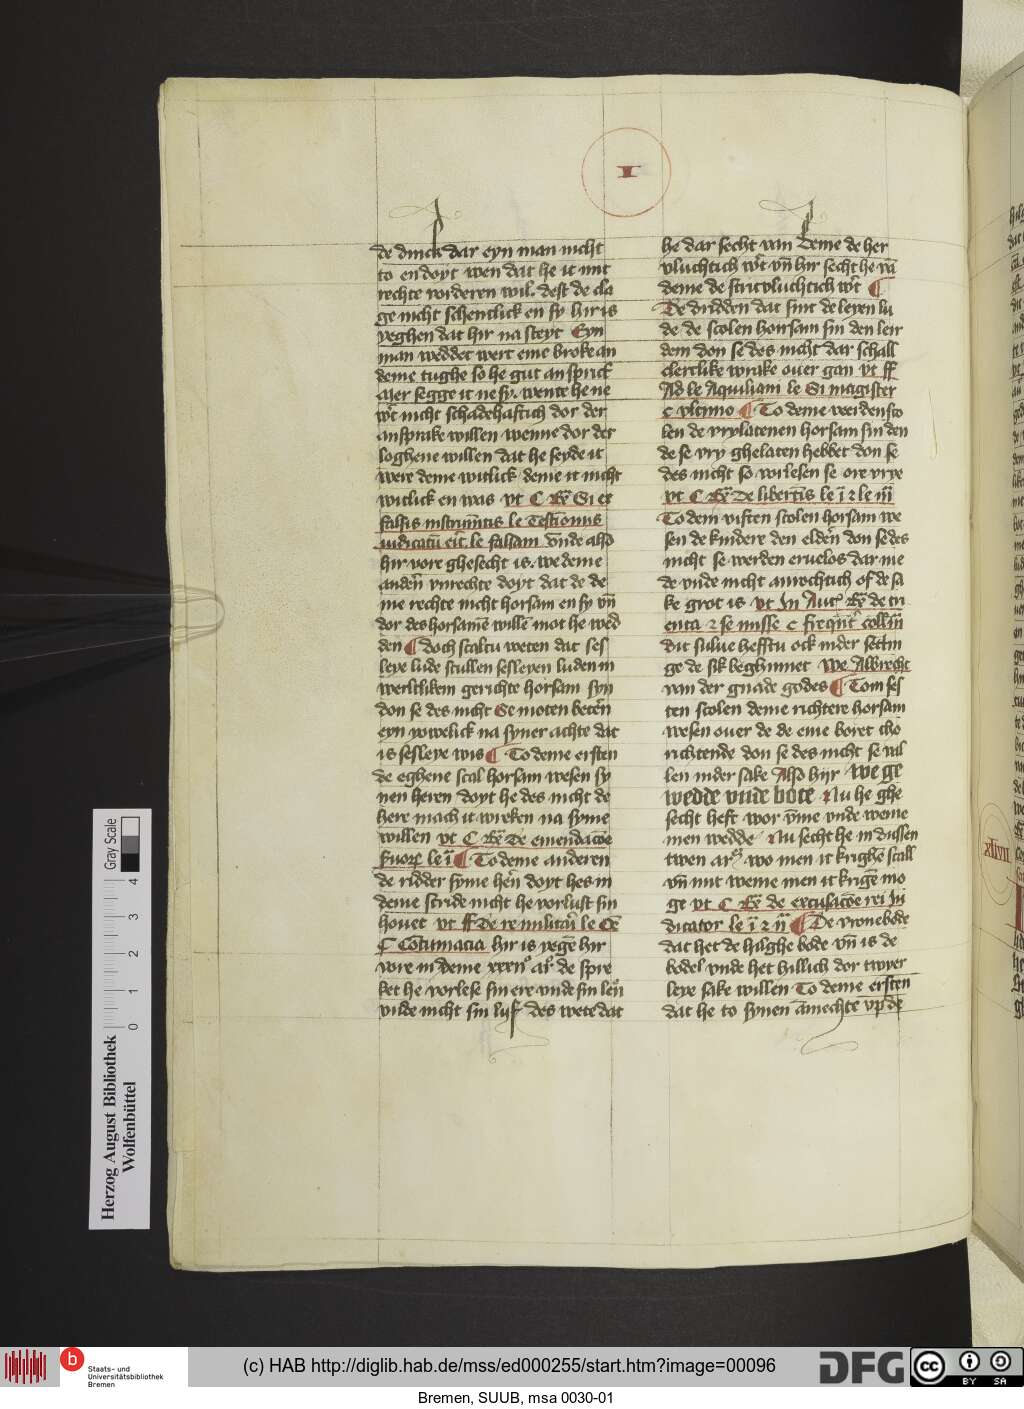 I
de dinck dar eyn man nicht
to en doyt wen dat he it mit
rechte vorderen wil. dest de cla
ge nicht schentlick en sy hir is
yeghen dat hir na steyt Eyn
man weddet wert eme broke an
deme tughe so he gut ansprict
Mer segge it ne sy. wente he ne
wt̄ nicht schadehaftich dor der
ansprake willen wenne dor der
loghene willen dat he seyde it
were deme witlick deme it nicht
witlick en was vt C Rx̄ Si ex
falsis instrumē̄tis le Testīonius
iudicatū eit. le falsam Vnde also
hir vore ghesecht is. we deme
anderī vnrechte doyt dat de de
me rechte nicht horsam en sy vn̄
dor des horsamē willē mot he wed
den ¶ doch scaltu weten dat ses
leye lude scullen sesleyen luden in
werltlikem gerichte horsam syn
don se des nicht Se moten beterī
eyn ywelick na syner achte dat
is sesleye wis ¶ To deme ersten
de eghene scal horsam wesen sy
nen heren doyt he des nicht de
here mach it wreken na syme
willen vt C Rx̄ De emendacōe
suorꝝ le ī ¶ To deme anderen
de ridder syme herī doyt hes in
deme stride nicht he vorlust sin
houet vt ff De re militari le Oē
C Cōtumacia hir is yegē hir
vore in deme xxxııº arº de spre
ket he vorlese sin ere vnde sin lēn
vnde nicht sin lyf des wete dat
he dar secht van Deme de her
vluchtich wt̄ vn̄ hir secht he vā
deme de stritvluchtich wt̄ ¶
De dridden dat sint de leyen lu
de de scolen horsam sin den leir
dem don se des nicht dar schall
clerclike wrake ouer gan vt ff
Ad le Aquiliam le Si magister
c vltimo ¶ To deme veerden sco
len de vrylatenen horsam sin den
de se vry ghelaten hebbet don se
des nicht so vorlesen se ore vrye
vt C Rx̄ De libertis le ī 2 le iii
To dem viften scolen horsam we
sen de kindere den elderī don se des
nicht se werden eruelos dar me
de vnde nicht anrochtich of de sa
ke grot is vt In Aut̄ Rx̄ de tri
enta 2 se misse c frequēt̄ collm̄
Dit sulue hefftu ock inder settin
ge de sik beghinnet We Albrecht
van der gnade godes ¶ Tom ses
ten scolen deme richtere horsam
wesen ouer de de eme boret tho
richtende don se des nicht se val
len inder sake Also hijr We ge
wedde vnde bote Nu he ghe
secht heft wor vm̄e vnde weme
men wedde / Nu secht he in dussen
twen arᵗ wo men it krighē scall
vn̄ mit weme men it krigē mo
ge vt C Rx̄ de excusacōe rei In
dicator le ī 2 ii ¶ De vronebode
dat het de hilghe bode vn̄ is de
bodel vnde het hillich dor twyer
leye sake willen To deme ersten
dat he to synen āmechte vp de
xlvii
Gray Scale
0 1 2 3 4
Herzog August Bibliothek
Wolfenbüttel
b
Staats- und
Universitätsbibliothek
Bremen
(c) HAB http://diglib.hab.de/mss/ed000255/start.htm?image=00096
DFG
cc BY SA
Bremen, SUUB, msa 0030-01